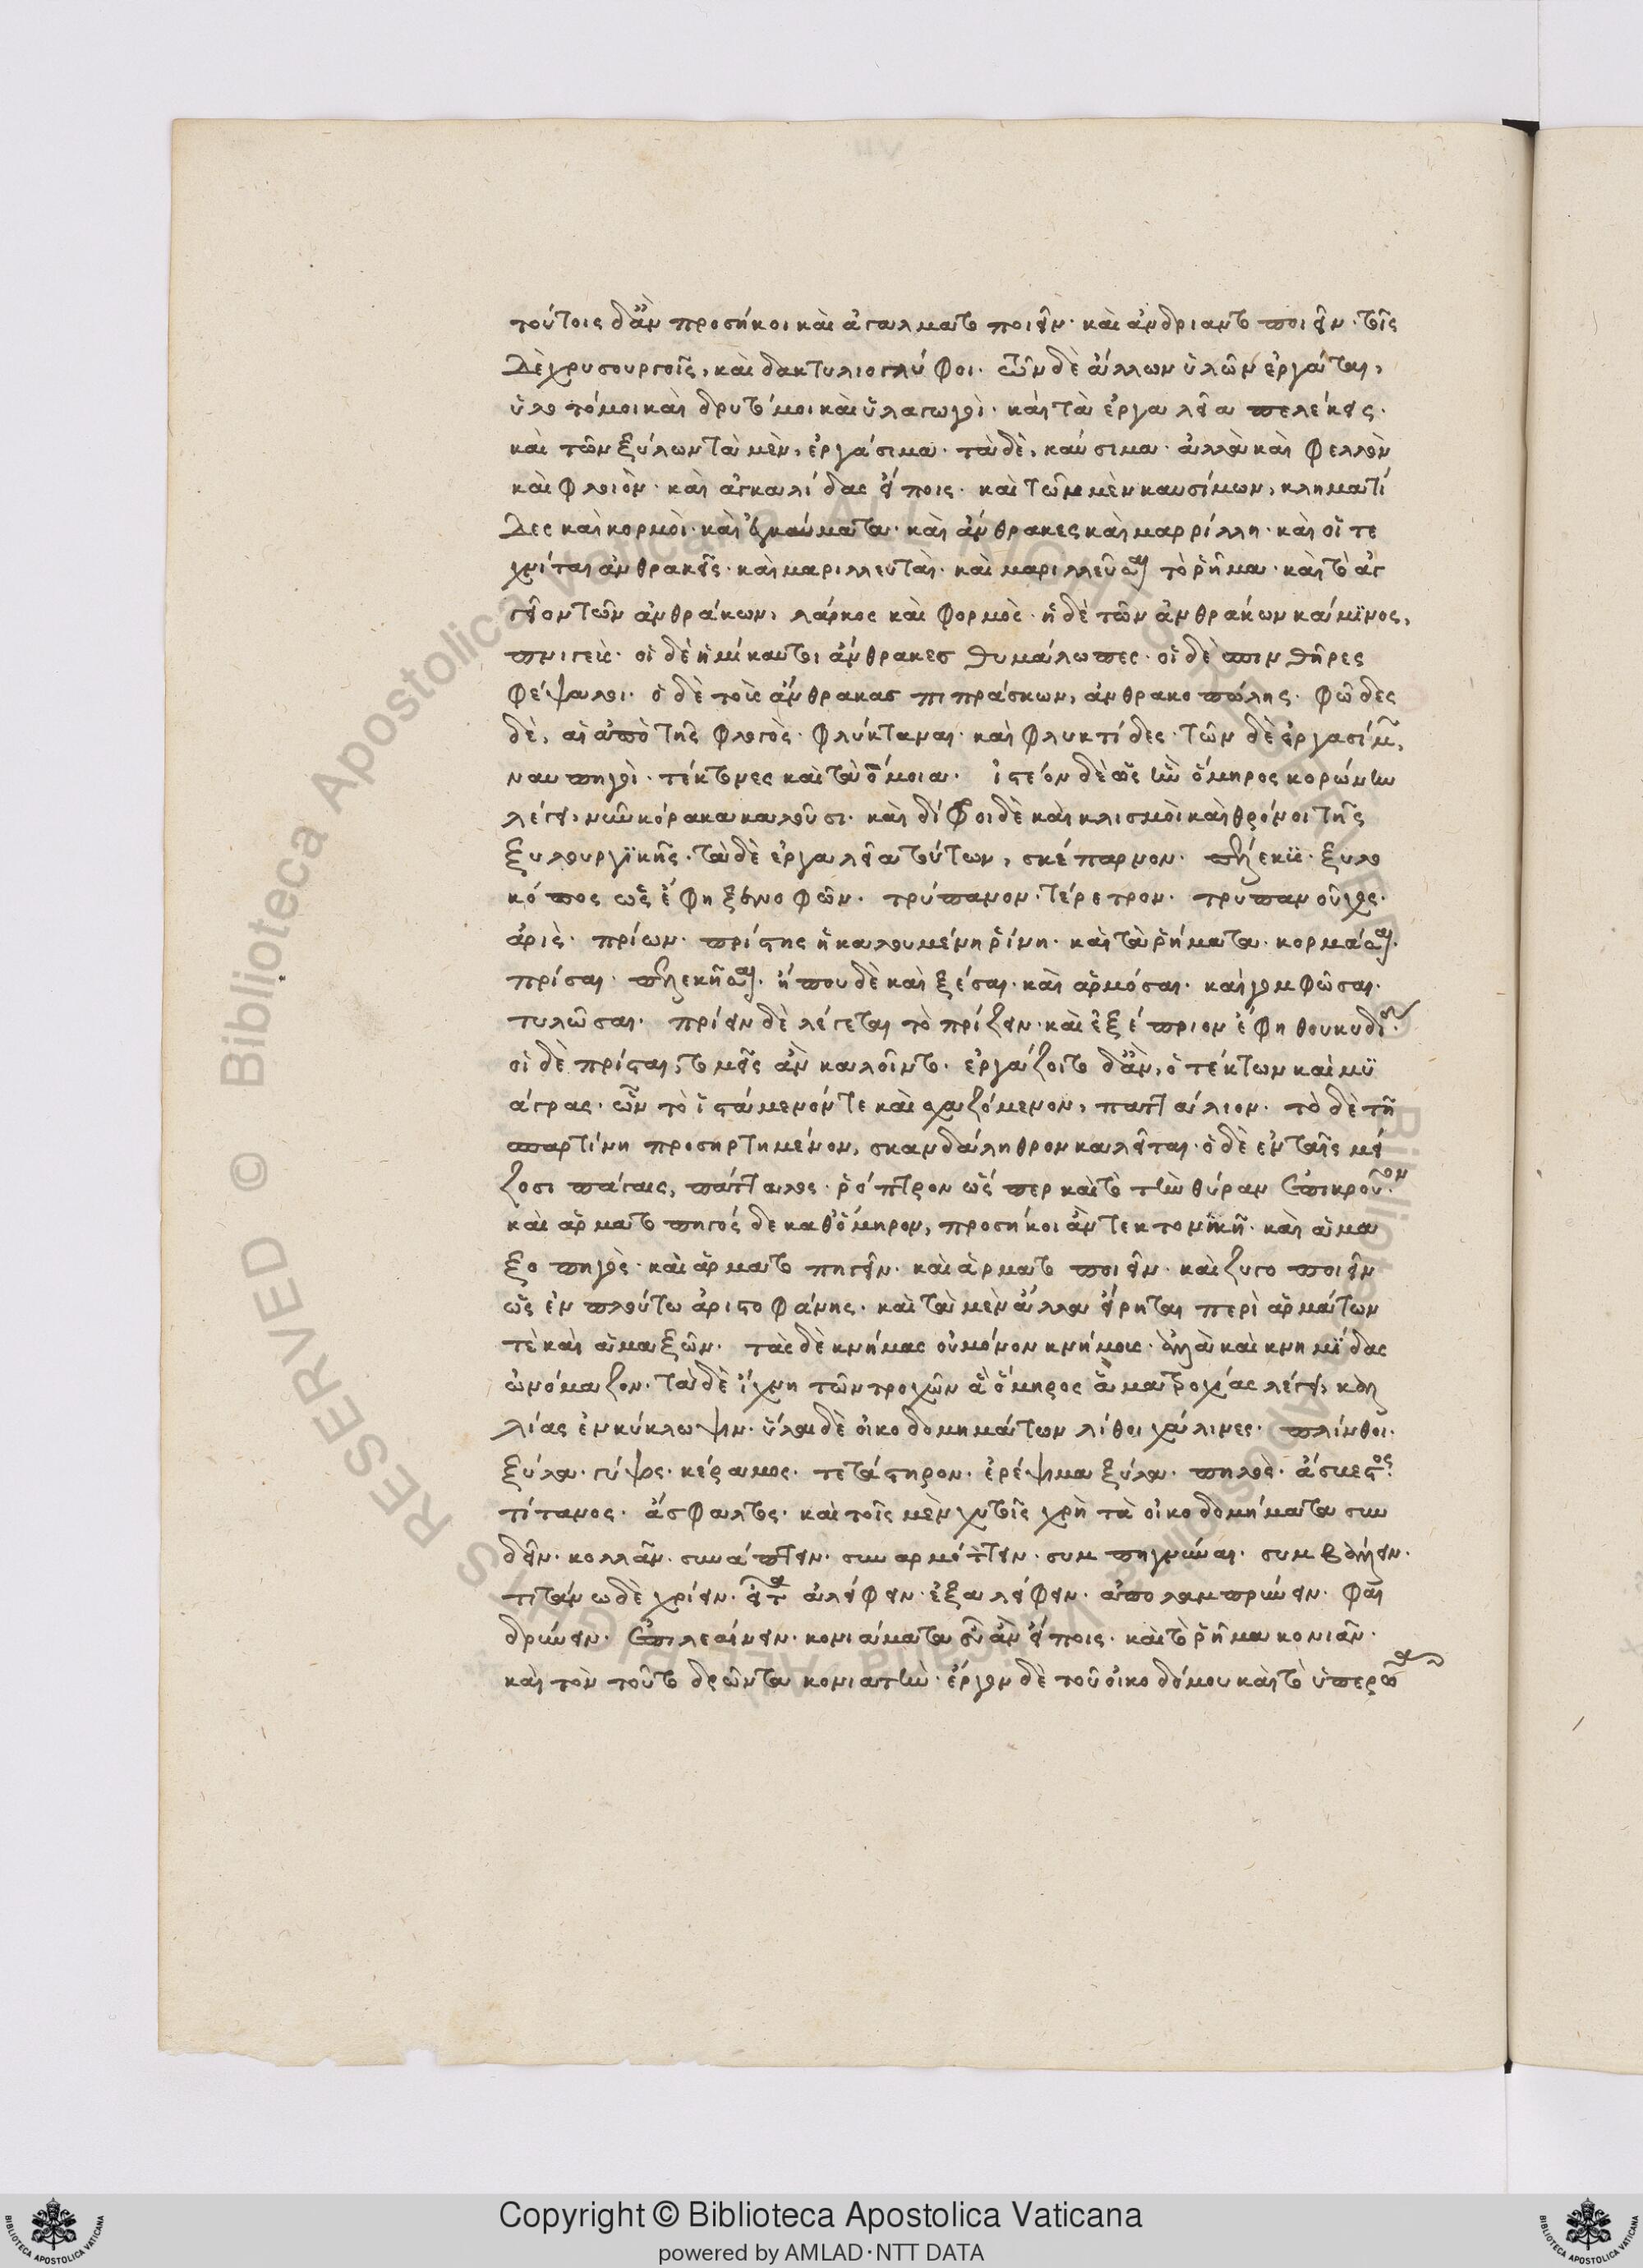 τούτοις δἂν προσήκοι καὶ ἀγαλματοποιεῖν· καὶ ἀνδριαντοποιεῖν· τοῖς
δὲ χρυσουργοῖς, καὶ δακτυλιογλύφοι. τῶν δὲ ἄλλων ὑλῶν ἐργάται,
ὑλοτόμοι καὶ δρυτόμοι καὶ ὑλαγωγοὶ· καὶ τὰ ἐργαλεῖα πελέκεις·
καὶ τῶν ξύλων τὰ μὲν, ἐργάσιμα· τὰ δὲ, καύσιμα· ἀλλὰ καὶ φελλὸν
καὶ φλοιὸν· καὶ ἀγκαλίδας εἴποις· καὶ τῶν μὲν καυσίμων, κληματί
δες καὶ κορμοὶ· καὶ ἐγκαύματα· καὶ ἄνθρακες καὶ μαρρίλλη· καὶ οἱ τε
χνίται ἀνθρακεῖς· καὶ μαριλλευταὶ· καὶ μαριλλεῦσαι τὸ ῥῆμα· καὶ τὸ ἀγ
γεῖον τῶν ἀνθράκων, λάρκος καὶ φορμὸς· ἡ δὲ τῶν ἀνθράκων κάμϊνος,
πνιγεὺς· οἱ δὲ ἡμίκαυτοι ἄνθρακες θυμάλωπες· οἱ δὲ σπινθῆρες
φέψαλοι· ὁ δὲ τοὺς ἄνθρακας πιπράσκων, ἀνθρακοπώλης· φῶδες
δὲ, αἱ ἀπὸ τῆς φλογὸς· φλύκταιναι· καὶ φλυκτίδες· τῶν δὲ ἐργασίμ,
ναυπηγοὶ· τέκτονες καὶ τὰ ὅμοια. ἰστέον δὲ ὡς ἣν ὅμηρος κορώνην
λέγει, νῦν κόρακα καλοῦσι· καὶ δίφροι δὲ καὶ κλισμοὶ καὶ θρόνοι τῆς
ξυλουργϊκῆς· τὰ δὲ ἐργαλεῖα τούτων, σκέπαρνον· πέλεκυς· ξυλο
κόπος ὡς ἔφη ξενοφῶν. τρύπανον· τέρετρον· τρυπανοῦχος·
ἀρὶς· πρίων· πρίστης ἡ καλουμένη ῥίνη· καὶ τὰ ῥήματα· κορμάσαι·
πρίσαι· πελεκῆσαι· ἤπου δὲ καὶ ξέσαι· καὶ ἁρμόσαι· καὶ γομφῶσαι·
τυλῶσαι· πρίειν δὲ λέγεται τὸ πρίζειν· καὶ ἐξέπριον ἔφη θουκυδίδης·
οἱ δὲ πρίσται, τομεῖς ἂν καλοῖντο· ἐργάζοιτο δἂν, ὁ τέκτων καὶ μϋ
άγρας· ὧν τὸ ἱστάμενόν τε καὶ σχαζόμενον, παττάλιον· τὸ δὲ τῆ
σπαρτίνη προσηρτημένον, σκανδάληθρον καλεῖται· ὁ δὲ ἐν ταῖς μεί
ζοσι πάγαις, πάτταλος· ῥόπτρον ὥσπερ καὶ τὸ τὴν θύραν ἐπικροῦον·
καὶ ἁρματοπηγός δε καθ' ὅμηρον, προσήκοι ἂν τεκτονϊκῆ· καὶ ἁμα
ξοπηγὸς· καὶ ἁρματοπηγεῖν· καὶ ἁρματοποιεῖν· καὶ ζυγοποιεῖν
ὡς ἐν πλούτω ἀριστοφάνης· καὶ τὰ μὲν ἄλλα εἴρηται περὶ ἁρμάτων
τὲ καὶ ἁμαξῶν· τὰς δὲ κνήμας οὐ μόνον κνήμας· ἀλλὰ καὶ κνημῖδας
ὠνόμαζον· τὰ δὲ ἴχνη τῶν τροχῶν ἃ ὅμηρος ἁματροχίας λέγει,
λίας ἐν κύκλωψιν· ὕλαι δὲ οἰκοδομημάτων λίθοι χάλικες· πλίνθοι·
ξύλα· γύψος· κέραμος· τετάστηρον· ἐρέψιμα ξύλα· πηλὸς· ἄσβεστος·
τίτανος· ἄσφαλτος· καὶ τοῖς μὲν χυτοῖς χρὴ τὰ οἰκοδομήματα συν
δεῖν· κολλᾶν· συνάπτειν· συναρμόττειν· συμπηγνύναι· συμβάλλειν·
τιτάνω δὲ χρίειν· εἶτα ἀλείφειν· ἐξαλείφειν· ἀπολαμπρύνειν· φαι
δρύνειν· ἐπιλεαίνειν· κονιάματα οὖν ἂν εἴποις· καὶ τὸ ῥῆμα κονιᾶν·
καὶ τὸν τοῦτο δρῶντα κονιατὴν· ἔργον δὲ τοῦ οἰκοδόμου καὶ τὸ
Copyright © Biblioteca Apostolica Vaticana
powered by AMLAD·NTT DATA